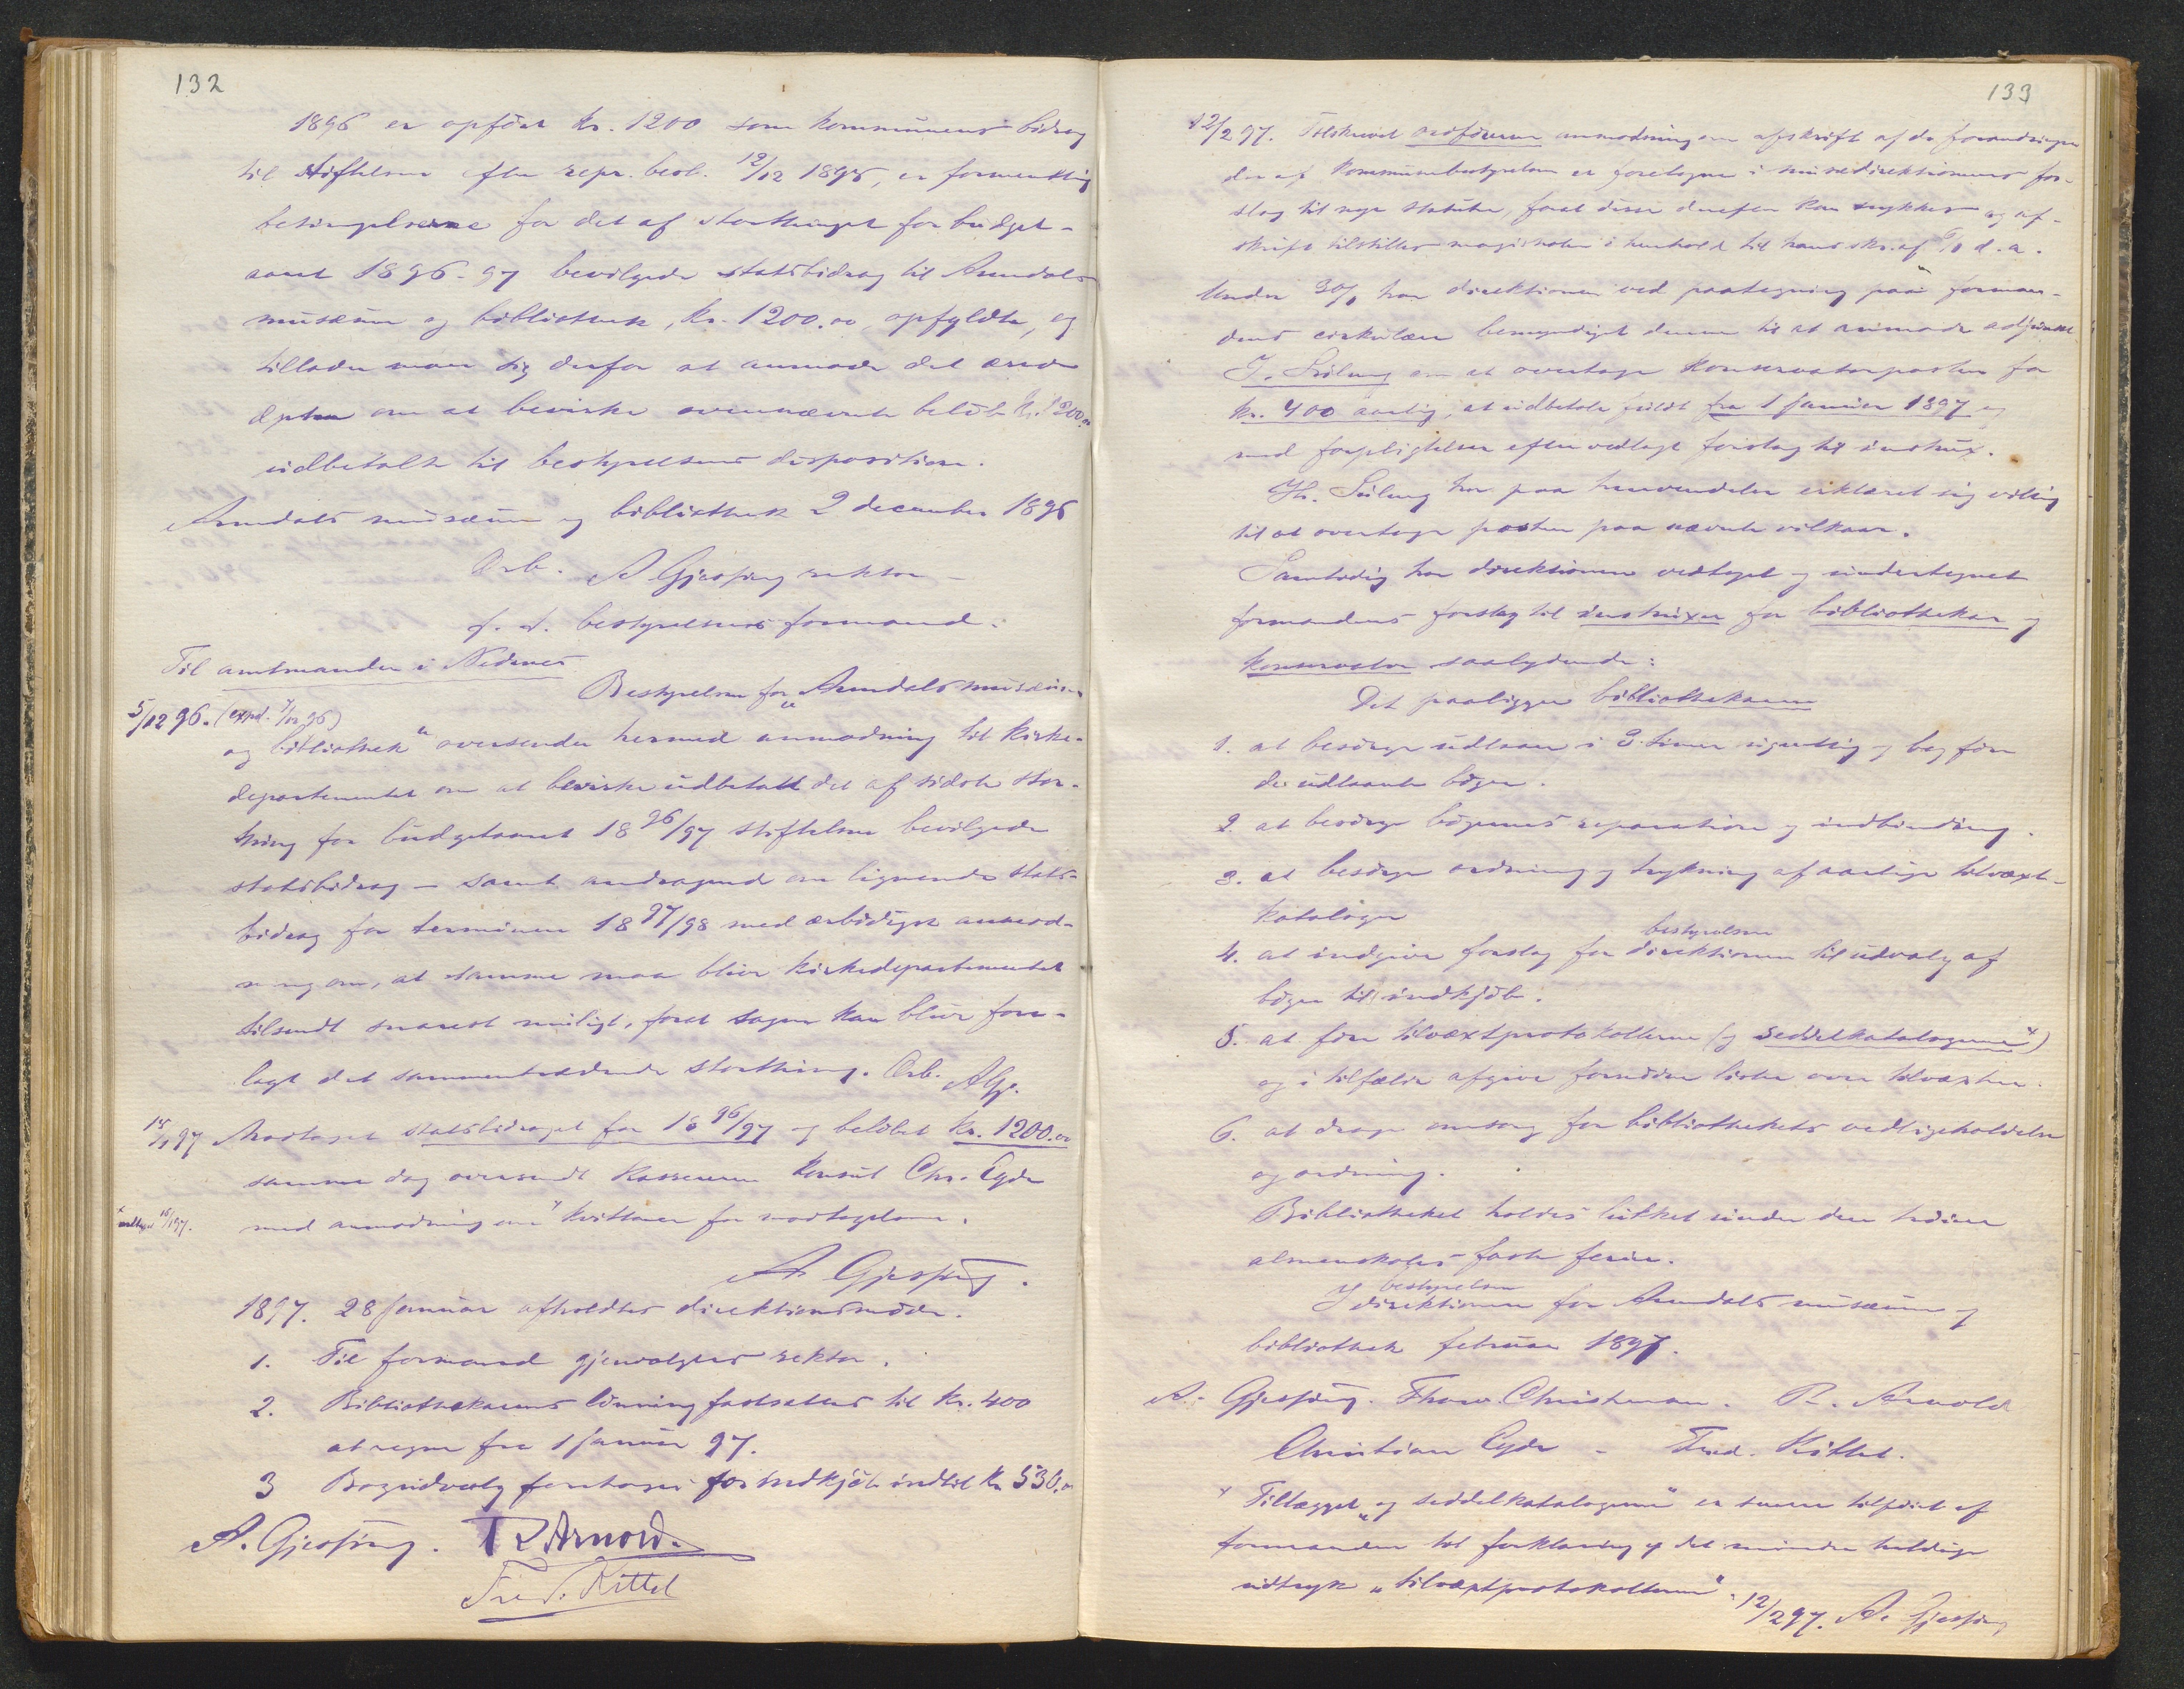 132
1896 er opført kr. 1200 som kommunens bidrag
til stiftelsen efter repr. besl. 12/12 1895, er formentlig
betingelserne for det af storthinget for budget-
aaret 1896-97 bevilgede statsbidrag til Arendals
musæum og bibliothek, kr. 1200.00, opfyldte, og
tillader man sig derfor at anmode det ærede
dptm om at bevirke ovennævnte beløb kr. 1200.00
udbetalt til bestyrelsens disposition.
Arendals musæum og bibliothek 2 december 1896
Ærb. A Gjessing rektor
f. t. bestyrelsens formand.
Til amtmanden i Nedenes
5/12 96. (exped. 7/12 96) Bestyrelsen for „Arendals musæum
og bibliothek“ oversender hermed anmodning til kirke-
departementet om at bevirke udbetalt det af sidste stor-
thing for budgetaaret 1896/97 stiftelsen bevilgede
statsbidrag – samt andragende om lignende stats-
bidrag for terminen 1897/98 med ærbødigst anmod-
ning om, at samme maa blive kirkedepartementet
tilsendt snarest muligt, forat sagen kan blive fore-
lagt det sammentrædende storthing. Ærb. AGj.
15/1 97 Modtaget statsbidraget for 1896/97 og beløbet kr. 1200.00
samme dag oversendt kassereren konsul Chr. Eyde
x modtaget 16/1 97. med anmodning om x kvittance for modtagelsen.
A. Gjessing.
1897. 28 januar afholdtes direktionsmøde.
1. Til formand gjenvalgtes rektor.
2. Bibliothekarens lønning fastsættes til kr. 400
at regne fra 1 januar 97.
3 Bogudvalg foretages for indkjøb indtil kr 530.00
A. Gjessing. R Arnold.
Fred. Kittel
133
12/2 97. Tilskrevet ordføreren anmodning om afskrift af de forandringer
der af kommunebestyrelsen er foretagne i musædirektionens for-
slag til nye statuter, forat disse derefter kan trykkes og af-
skrift tilstilles magistraten i henhold til hans skr. af d. a.
Under 30/1 har direktionen ved paategning paa forman-
dens cirkulære bemyndiget denne til at anmode adjunkt
om at overtage konservatorposten for
kr. 400 aarlig, at udbetale fuldt fra 1 januar 1897 og
med forpligtelser efter vedlagt forslag til instrux.
Hr. har paa henvendelse erklæret sig villig
til at overtage posten paa nævnte vilkaar.
Samtidig har direktionen vedtaget og undertegnet
formandens forslag til instruxer for bibliothekar og
konservator saalydende:
Det paaligger bibliothekaren
1. at besørge udlaan i 3 timer ugentlig og bogføre
de udlaante bøger.
2. at besørge bøgernes reparation og indbinding.
3. at besørge ordning og trykning af aarlige tilvæxt-
kataloger
4. at indgive forslag for direktionen bestyrelsen til udvalg af
bøger til indkjøb.
5. at føre tilvæxtprotokollerne (og seddelkatalogerne x)
og i tilfælde afgive fornødne lister over tilvæxten.
6. at drage omsorg for bibliothekets vedligeholdelse
og ordning.
Bibliotheket holdes lukket under den høiere
almenskoles faste ferier.
I direktionen bestyrelsen for Arendals musæum og
bibliothek februar 1897.
A. Gjessing. Thorv. Christensen. R. Arnold
Christian Eyde – Fred. Kittel.
x Tillægget „og seddelkatalogerne“ er senere tilføiet af
formanden til forklaring af det mindre heldige
udtryk „tilvæxtprotokollerne“. 12/2 97. A. Gjessing